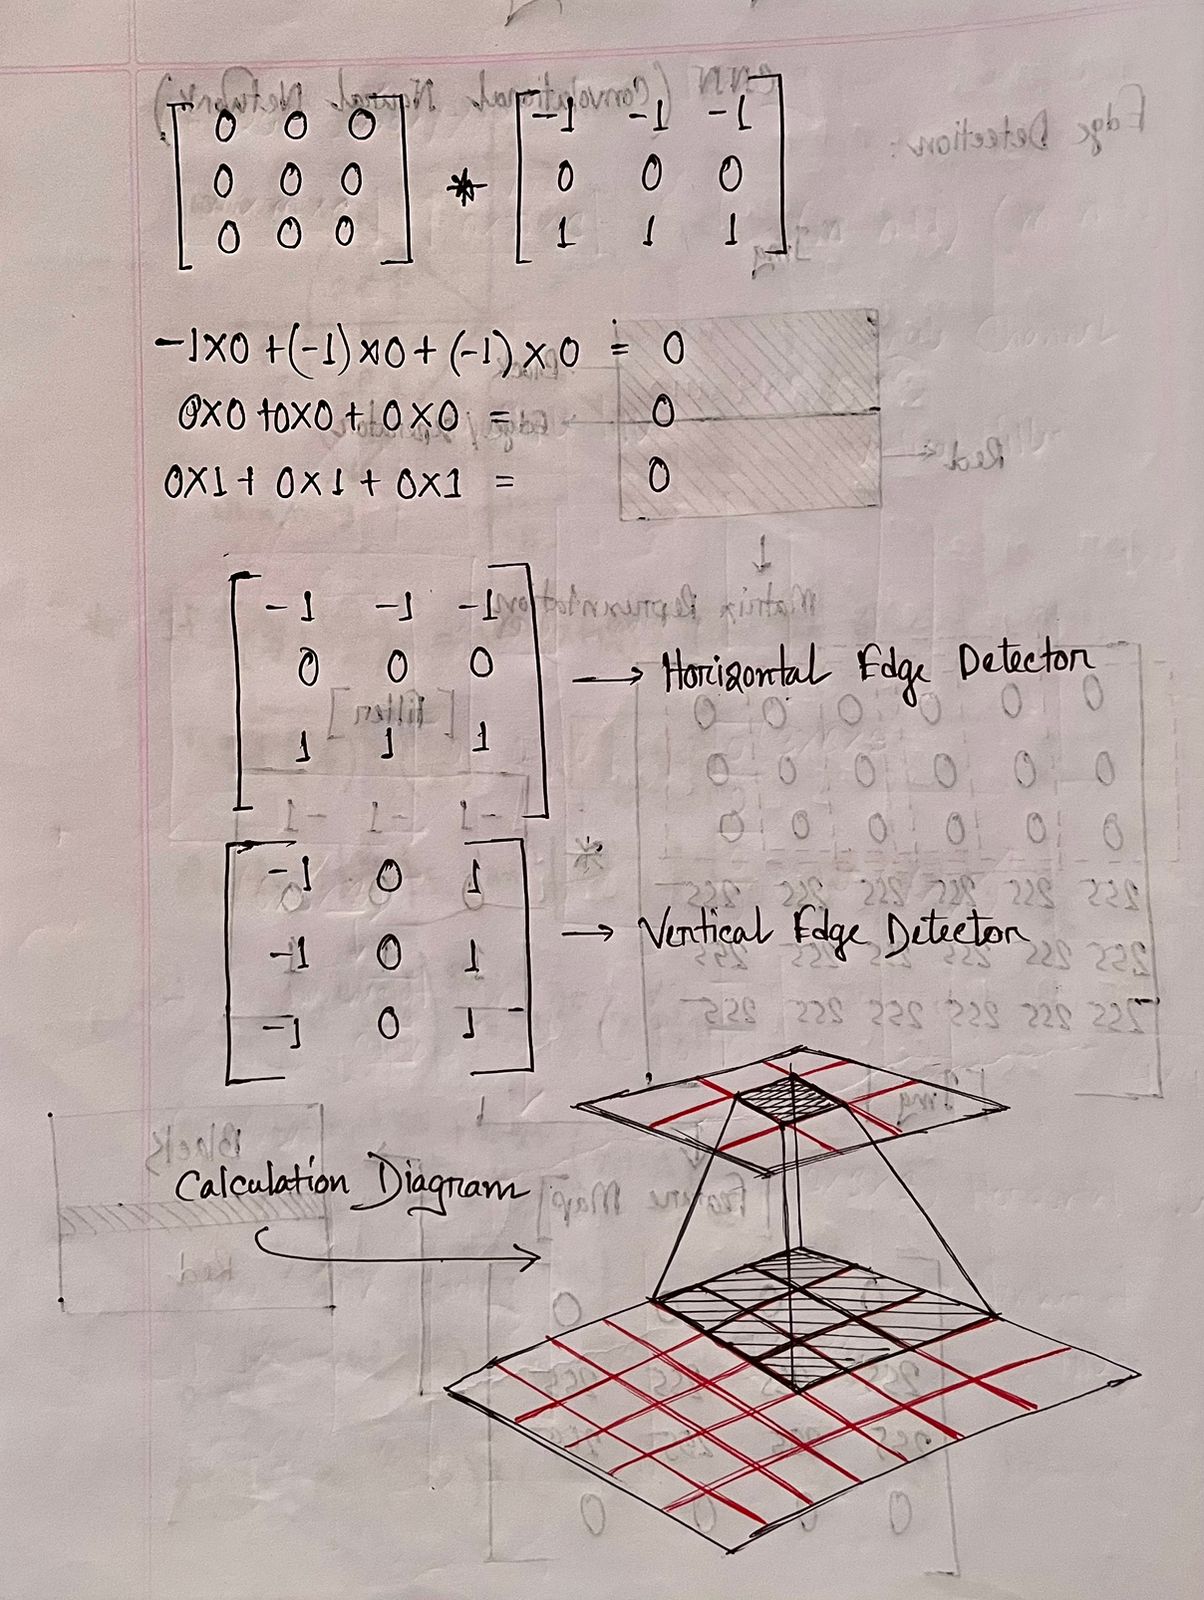 [0 0 0] * [-1 -1 -1]
[0 0 0] [0 0 0]
[0 0 0] [1 1 1]
-1X0 +(-1)X0+ (-1) X 0 = 0
0X0 +0X0+ 0X0 = 0
0X1+ 0X1+ 0X1 = 0
[-1 -1 -1]
[0 0 0] → Horizontal Edge Detector
[1 1 1]
[-1 0 1]
[-1 0 1] → Vertical Edge Detector
[-1 0 1]
Calculation Diagram